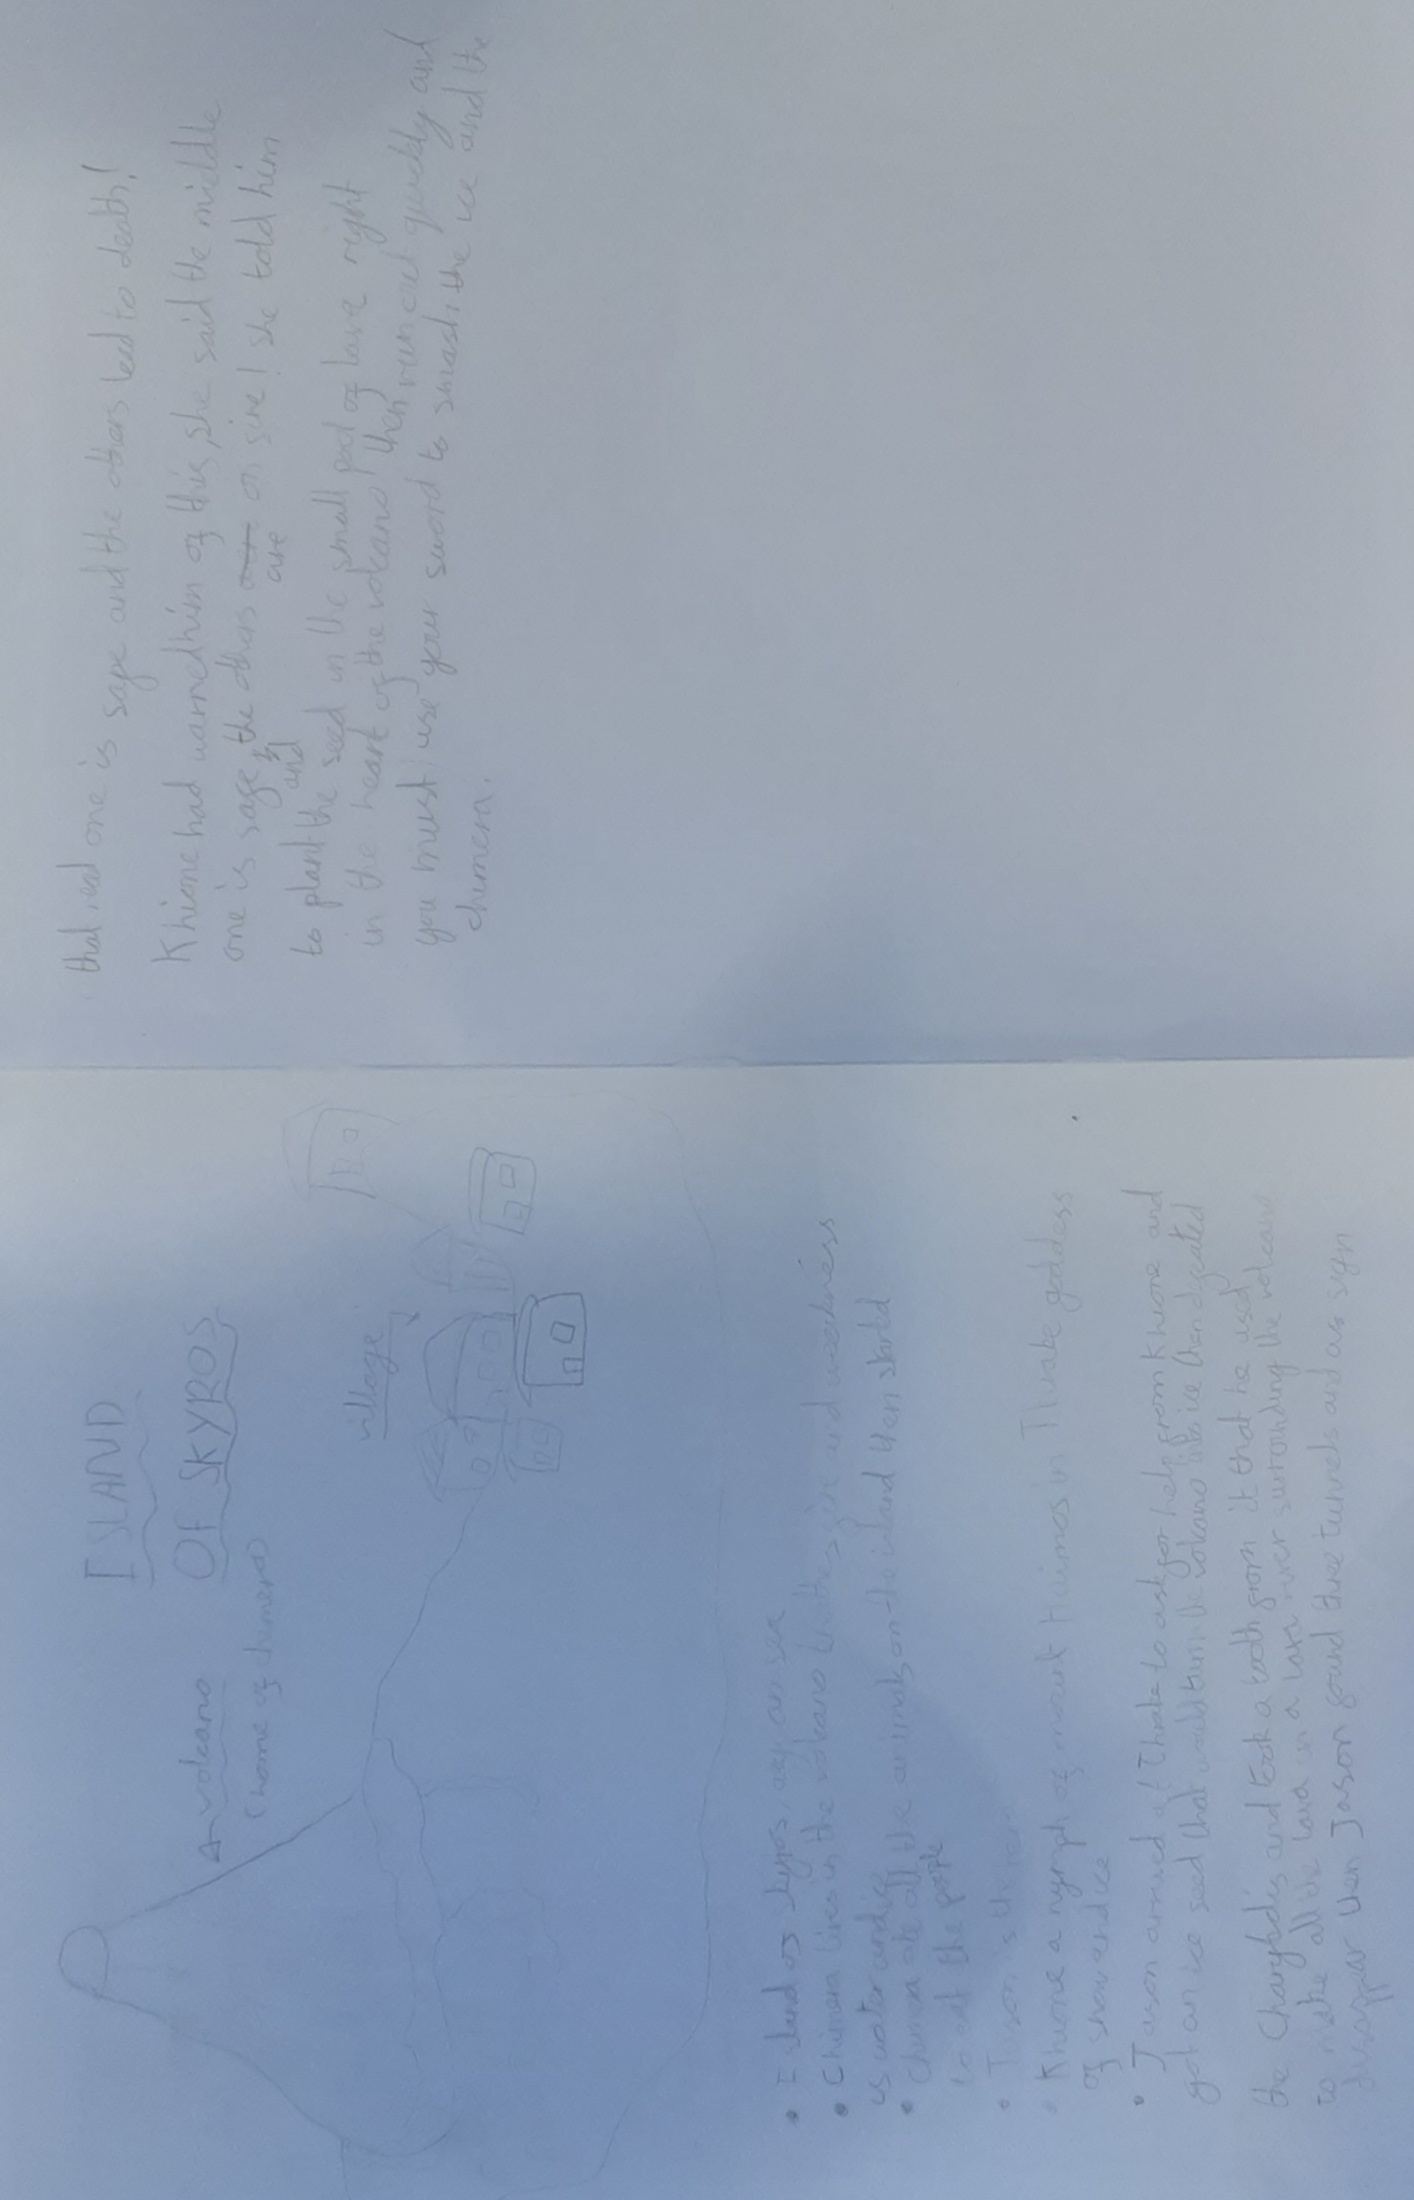 ISLAND
OF SKYROS
volcano
(home of chimera)
village
Island of skyros, aegean sea
Chimera lives in the volcano, breathes fire and weakness
is water and ice
Chimera ate all the animals on the island then started
to eat the people
Jason is the hero
Khione a nymph of mount Haimos in Thrake goddess
of snow and ice
Jason arrived at Thrake to ask for help from Khione and
got an ice seed that would turn the volcano into ice then defeated
the Charybdis and took a tooth from it that he used
to make all the lava in a lava river surrounding the volcano
disappear then Jason found three tunnels and a sign
that read one is safe and the others lead to death!
Khione had warned him of this, she said the middle
one is safe, and the others are on fire! she told him
to plant the seed in the small pool of lava right
in the heart of the volcano, then run out quickly and
you must use your sword to smash the ice and the
chimera.